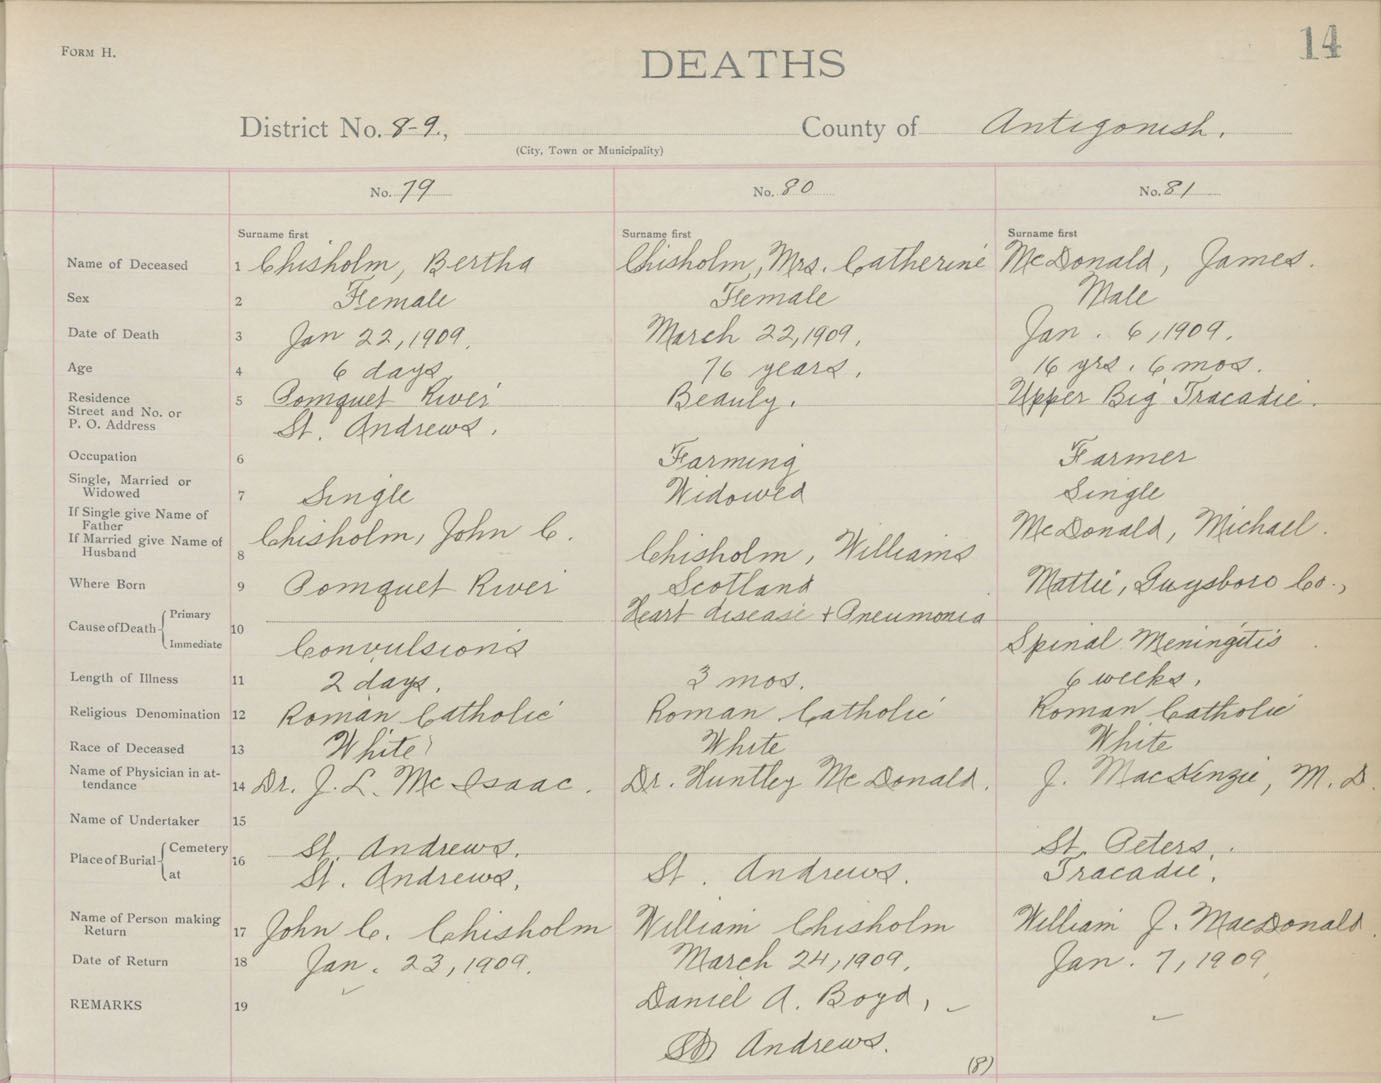 FORM H.
14
DEATHS
District No. 8-9., County of Antigonish.
(City, Town or Municipality)
No. 79 No. 80 No. 81
Surname first Surname first Surname first
Name of Deceased 1 Chisholm, Bertha Chisholm, Mrs. Catherine McDonald, James.
Sex 2 Female Female Male
Date of Death 3 Jan 22, 1909. March 22, 1909. Jan. 6, 1909.
Age 4 6 days 76 years. 16 yrs. 6 mos.
Residence 5 Pomquet River Beauly. Upper Big Tracadie.
Street and No. or
P. O. Address St. Andrews.
Occupation 6 Farming Farmer
Single, Married or
Widowed 7 Single Widowed Single
If Single give Name of
Father McDonald, Michael.
If Married give Name of Chisholm, John C.
Husband 8 Chisholm, Williams
Where Born 9 Pomquet River Scotland Mattie, Guysboro Co.,
Cause of Death Primary Heart disease + Pneumonia
10
Immediate Convulsions Spinal Meningitis
Length of Illness 11 2 days. 3 mos. 6 weeks.
Religious Denomination 12 Roman Catholic Roman Catholic Roman Catholic
Race of Deceased 13 White White White
Name of Physician in at-
tendance 14 Dr. J. L. McIsaac. Dr. Huntley McDonald. J. MacKenzie, M. D.
Name of Undertaker 15
Place of Burial Cemetery St. Andrews. St. Peters.
16
at St. Andrews. St. Andrews. Tracadie.
Name of Person making
Return 17 John C. Chisholm William Chisholm William J. MacDonald.
Date of Return 18 Jan. 23, 1909. March 24, 1909. Jan. 7, 1909.
REMARKS 19 Daniel A. Boyd,
St. Andrews.
(8)